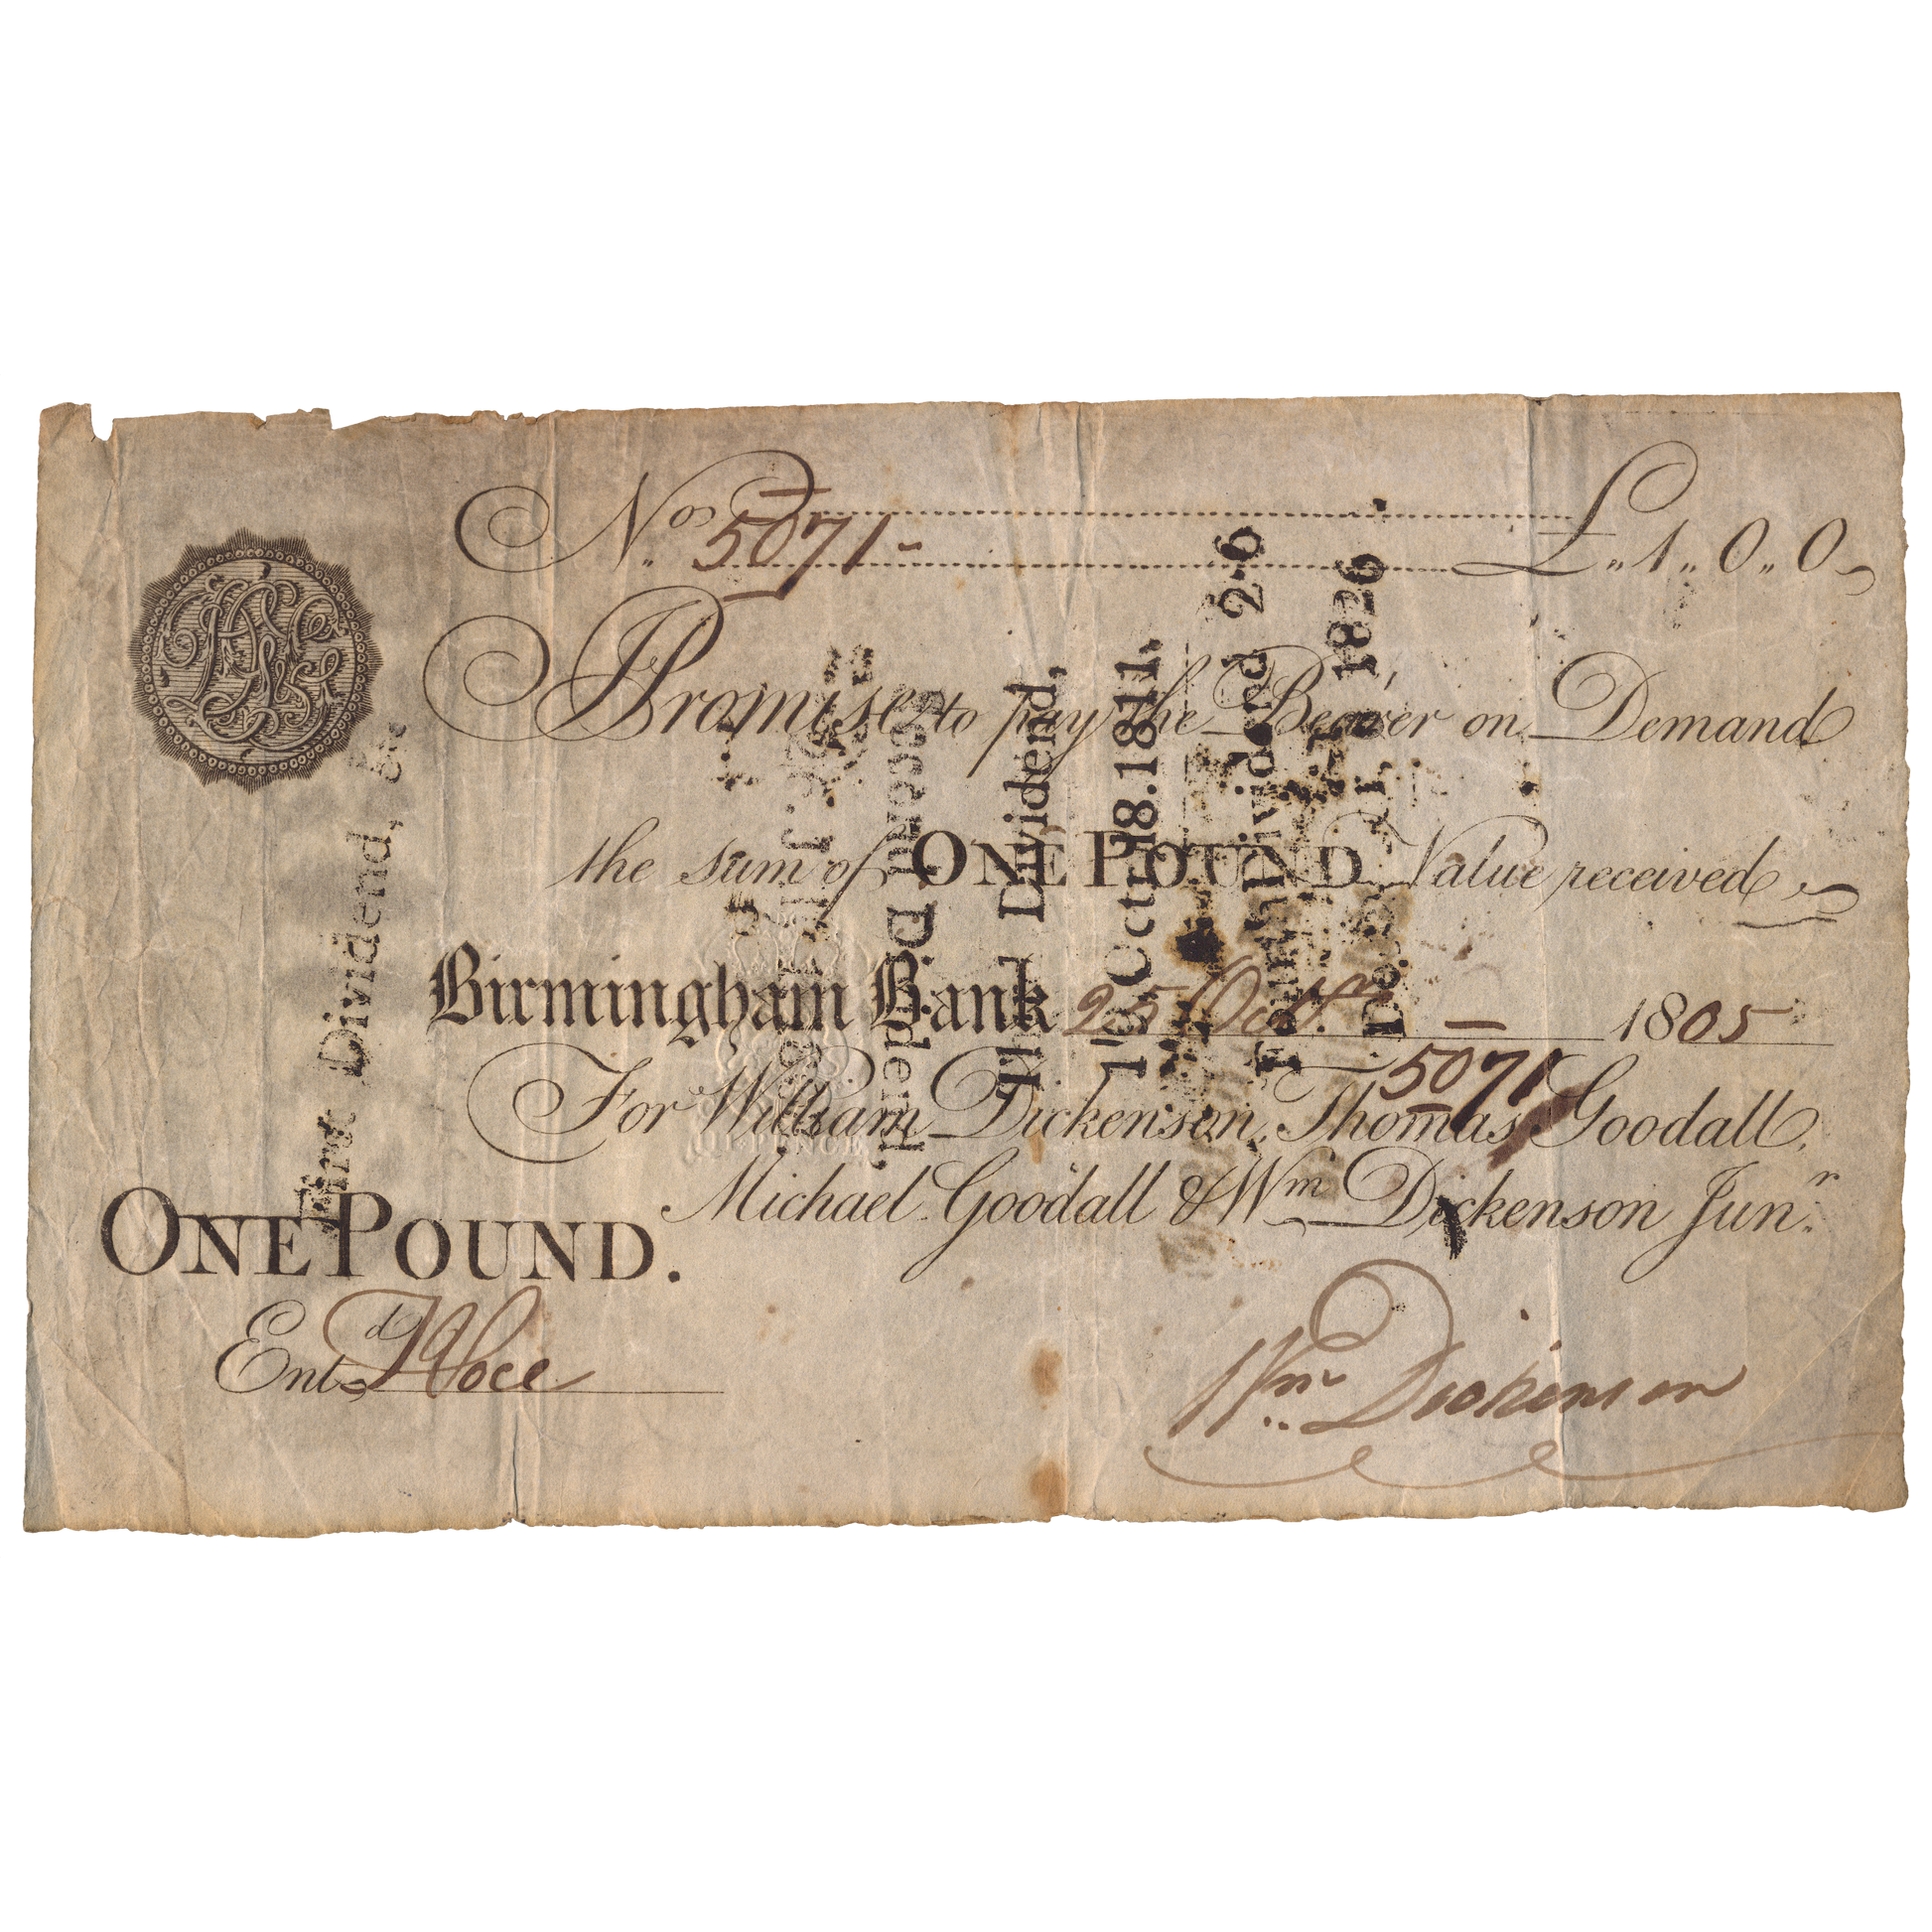 No. 5071 £ „ 1 „ 0 „ 0
I Promise to pay the Bearer on Demand
the sum of ONE POUND Value received
Birmingham Bank 25 Octbr 1805
5071
For William Dickenson, Thomas Goodall,
Michael Goodall & Wm Dickenson Junr.
ONE POUND.
Entd
Wm Dickenson
First Dividend, &c
Second Dividend,
Third Dividend,
18. 1811.
Fourth Dividend 2·6
1826